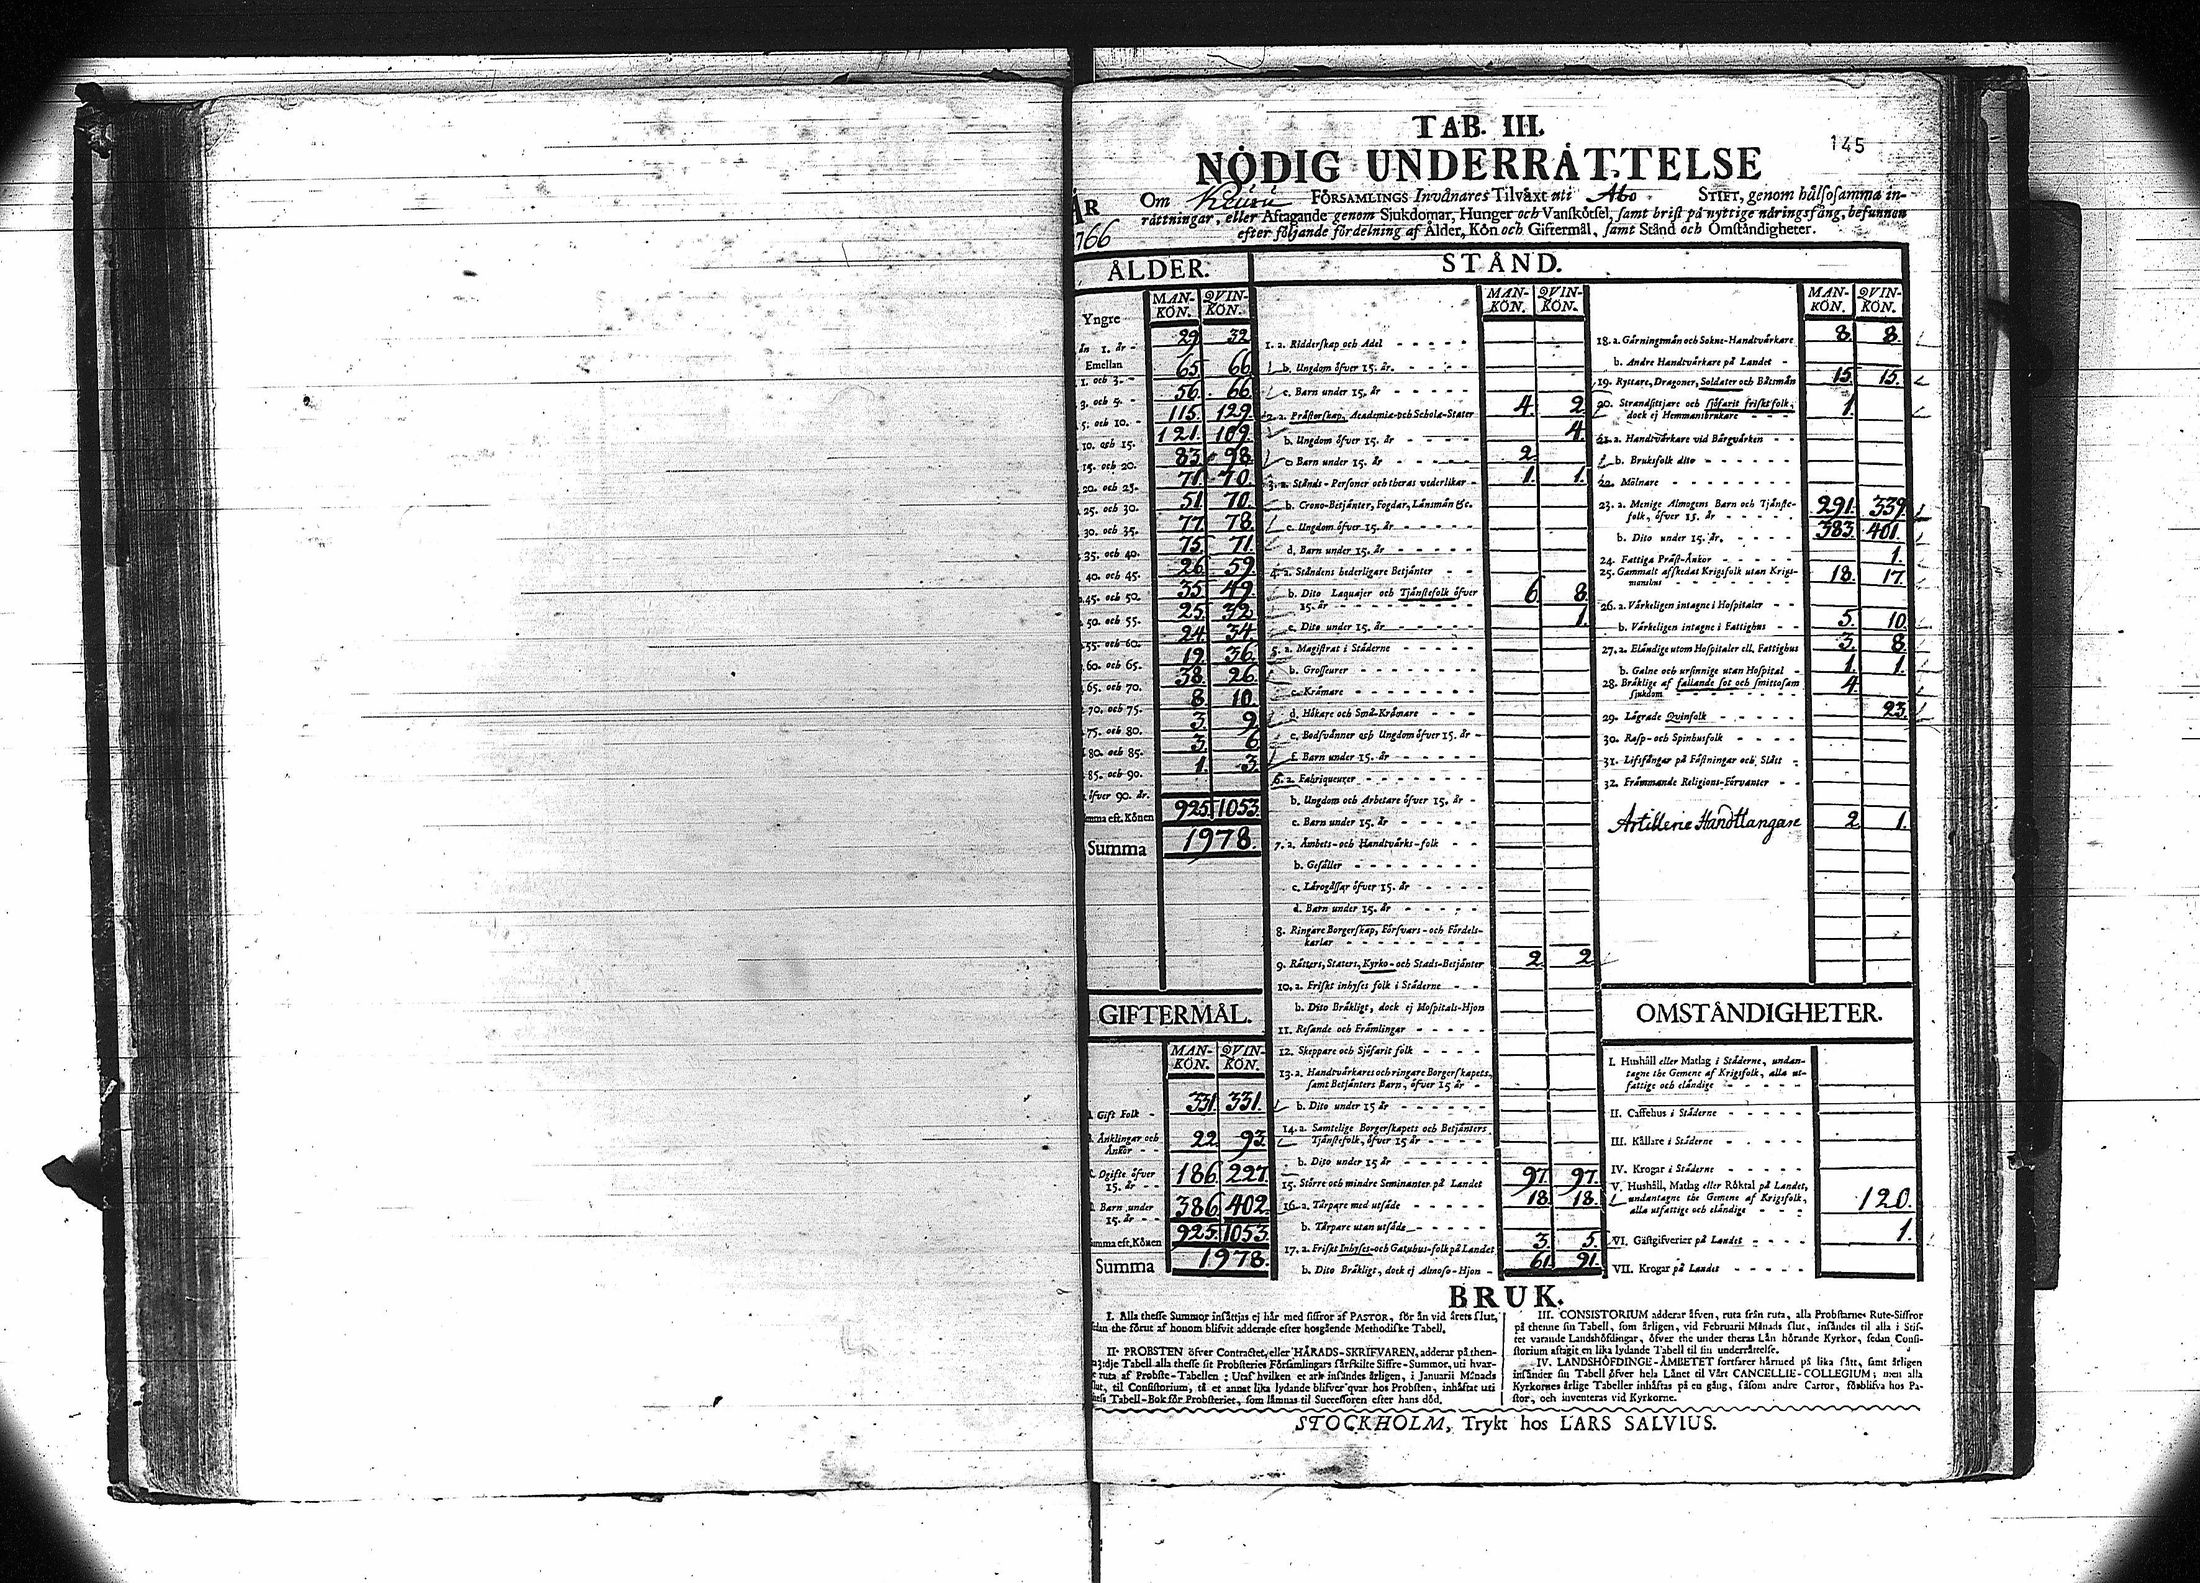 TAB. III.
145
NÖDIG UNDERRÅTTELSE
ÅR 766
Om Keuru FÖRSAMLINGS Invånares Tilvåxt uti Åbo STIFT, genom hålsosamma in-
råttningar, eller Aftagande genom Sjukdomar, Hunger och Vanskötsel, samt brist på nyttige näringsfång, befunnen
efter följande fördelning af Ålder, Kön och Giftermål, samt Stånd och Omståndigheter.
ÅLDER.
MAN-KÖN. QVIN-KÖN.
Yngre
ån 1. år - 29 32
Emellan
1. och 3. - 65 66
3. och 5. - 56 66
5. och 10. - 115 129
10. och 15. 121 109
15. och 20. 83 98
20. och 25. 71 70
25. och 30. 51 70
30. och 35. 77 78
35. och 40. 75 71
40. och 45. 26 59
45. och 50. 35 49
50. och 55. 25 32
55. och 60. 24 34
60. och 65. 19 36
65. och 70. 38 26
70. och 75. 8 10
75. och 80. 3 9
80. och 85. 3 6
85. och 90. 1 3
öfver 90. år.
mma eft. Könen 925 1053
Summa 1978.
GIFTERMÅL.
MAN-KÖN. QVIN-KÖN.
Gift Folk - 331 331
Ånklingar och
Ånkor - - 22 93
Ogifte öfver
15. år - - 186 227
Barn under
15. år - - 386 402
mma eft. Könen 925 1053
Summa 1978.
STÅND.
MAN-KÖN. QVIN-KÖN.
1. a. Ridderskap och Adel
b. Ungdom öfver 15. år.
c. Barn under 15. år
2. a. Pråsterskap, Academiæ-och Scholæ-Stater 4 2
b. Ungdom öfver 15. år 4
c Barn under 15. år 2
3. a. Stånds-Personer och theras vederlikar 1. 1.
b. Crono-Betjånter, Fogdar, Lånsmån &c.
c. Ungdom öfver 15. år
d. Barn under 15. år
4. a. Ståndens hederligare Betjånter
b. Dito Laquajer och Tjånstefolk öfver
15. år 6 8
c. Dito under 15. år 1.
5. a. Magistrat i Ståderne
b. Grosseurer
c. Kråmare
d. Håkare och Små-Kråmare
e. Bodsvånner och Ungdom öfver 15. år
f. Barn under 15. år
6. a. Fabriqueurer
b. Ungdom och Arbetare öfver 15. år
c. Barn under 15. år
7. a. Åmbets-och Handtvårks-folk
b. Gesåller
c. Lårogåssar öfver 15. år
d. Barn under 15. år
8. Ringare Borgerskap, Försvars-och Fördels-
karlar
9. Råtters, Staters, Kyrko-och Stads-Betjånter 2 2
10. a. Friskt inhyses folk i Ståderne
b. Dito Bråkligt, dock ej Hospitals-Hjon
11. Resande och Fråmlingar
12. Skeppare och Sjöfarit folk
13. a. Handtvårkares och ringare Borgerskapets,
samt Betjånters Barn, öfver 15 år
b. Dito under 15 år
14. a. Samtelige Borgerskapets och Betjånters
Tjånstefolk, öfver 15 år
b. Dito under 15 år
15. Större och mindre Seminanter på Landet 97. 97.
16. a. Torpare med utsåde 18. 18.
b. Torpare utan utsåde
17. a. Friskt Inhyses-och Gatuhus-folk på Landet 3 5
b. Dito Bråkligt, dock ej Almoso-Hjon 61 91
MAN-KÖN. QVIN-KÖN.
18. a. Gårningsmån och Sokne-Handtvårkare 8. 8.
b. Andre Handtvårkare på Landet
19. Ryttare, Dragoner, Soldater och Båtsmån 15 15
20. Strandsittjare och sjöfarit friskt folk,
dock ej Hemmansbrukare 1.
21. a. Handtvårkare vid Bårgvårken
b. Bruksfolk dito
22. Mölnare
23. a. Menige Almogens Barn och Tjånste-
folk, öfver 15. år 291. 339.
b. Dito under 15. år. 383 401.
24. Fattiga Pråst-Ånkor 1.
25. Gammalt afskedat Krigsfolk utan Krigs-
mansbus 18. 17.
26. a. Vårkeligen intagne i Hospitaler
b. Vårkeligen intagne i Fattighus 5. 10
27. a. Elåndige utom Hospitaler ell. Fattighus 3. 8.
b. Galne och ursinnige utan Hospital 1. 1.
28. Bråklige af fallande sot och smittosam
sjukdom 4.
29. Lågrade Qvinfolk 23.
30. Rasp-och Spinhusfolk
31. Lifsfångar på Fåstningar och Slått
32. Fråmmande Religions-Förvanter
Artillerie Handtlangare 2 1.
OMSTÅNDIGHETER.
I. Hushåll eller Matlag i Ståderne, undan-
tagne the Gemene af Krigsfolk, alla ut-
fattige och elåndige
II. Caffehus i Ståderne
III. Kållare i Ståderne
IV. Krogar i Ståderne
V. Hushåll, Matlag eller Röktal på Landet,
undantagne the Gemene af Krigsfolk,
alla utfattige och elåndige 120.
VI. Gåstgifverier på Landet 1.
VII. Krogar på Landet
BRUK.
I. Alla thesse Summor insåttjas ej hår med siffror af PASTOR, för ån vid årets slut,
sedan the förut af honom blifvit adderade efter hosgående Methodiske Tabell.
II. PROBSTEN öfver Contractet, eller HÅRADS-SKRIFVAREN, adderar på then-
na 3:dje Tabell alla thesse sit Probsteries Församlingars sårskilte Siffre-Summor, uti hvar-
je ruta af Probste-Tabellen: Utaf hvilken et ark insåndes årligen, i Januarii Månads
slut, til Consistorium, tå et annat lika lydande blifver qvar hos Probsten, inhåftat uti
thess Tabell-Bok för Probsteriet, som låmnas til Successoren efter hans död.
III. CONSISTORIUM adderar åfven, ruta från ruta, alla Probstarnes Rute-Siffror
på thenne sin Tabell, som årligen, vid Februarii Månads slut, insåndes til alla i Stif-
tet varande Landshöfdingar, öfver the under theras Lån hörande Kyrkor, sedan Consi-
storium aftagit en lika lydande Tabell til sin underråttelse.
IV. LANDSHÖFDINGE-ÅMBETET fortfarer hårmed på lika sått, samt årligen
insånder sin Tabell öfver hela Lånet til Vårt CANCELLIE-COLLEGIUM; men alla
Kyrkornes årlige Tabeller inhåftas på en gång, såsom andre Cartor, förblifva hos Pa-
stor, och inventeras vid Kyrkorne.
STOCKHOLM, Trykt hos LARS SALVIUS.